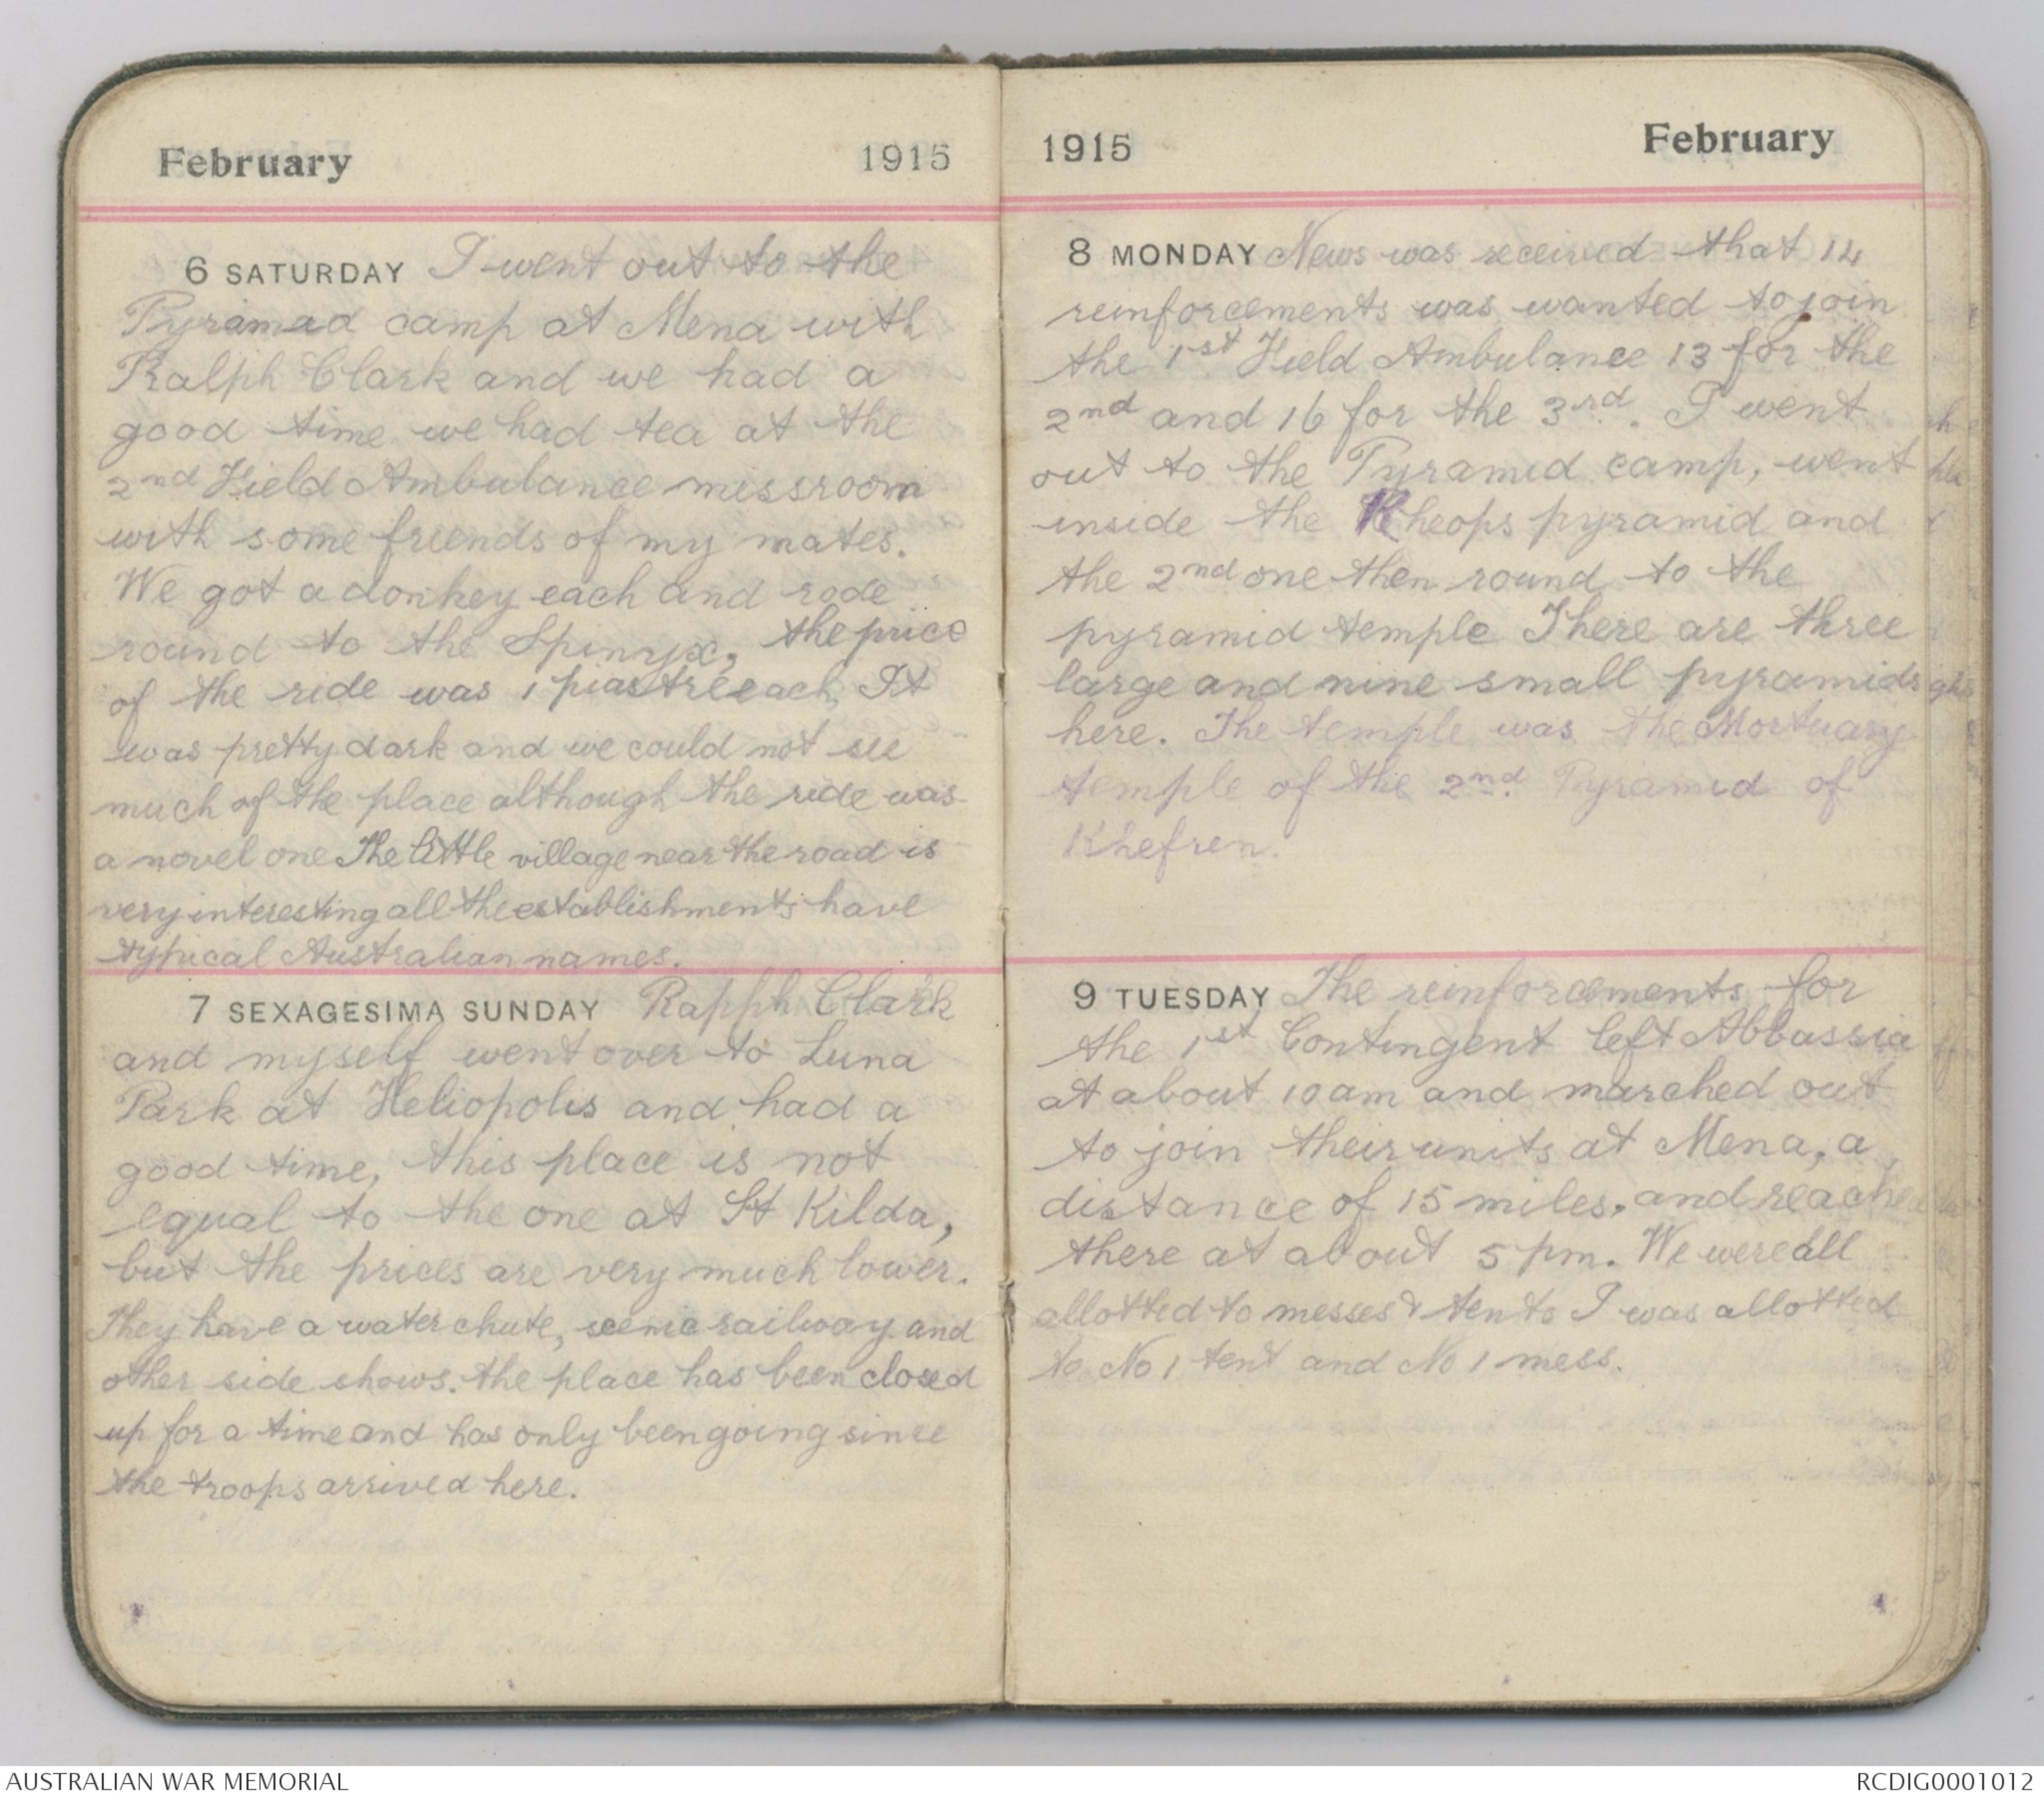 February 1915
6 SATURDAY I went out to the
Pyramad camp at Mena with
Ralph Clark and we had a
good time we had tea at the
2nd Field Ambulance messroom
with some friends of my mates.
We got a donkey each and rode
round to the Spinyx, the price
of the ride was 1 piastre each It
was pretty dark and we could not see
much of the place although the ride was
a novel one The little village near the road is
very interesting all the establishments have
typical Australian names.
7 SEXAGESIMA SUNDAY Rapph Clark
and myself went over to Luna
Park at Heliopolis and had a
good time, this place is not
equal to the one at St Kilda,
but the prices are very much lower.
They have a water chute, scenic railway and
other side shows. the place has been closed
up for a time and has only been going since
the troops arrived here.
1915 February
8 MONDAY News was received that 14
reinforcements was wanted to join
the 1st Field Ambulance 13 for the
2nd and 16 for the 3rd. I went
out to the Pyramid camp, went
inside the Kheops pyramid and
the 2nd one then round to the
pyramid temple There are three
large and nine small pyramids
here. The temple was the Mortuary
temple of the 2nd. Pyramid of
Khefren.
9 TUESDAY The reinforcements for
the 1st Contingent left Abbassia
at about 10 am and marched out
to join their units at Mena, a
distance of 15 miles, and reached
there at about 5 pm. We were all
allotted to messes & tents I was allotted
to No 1 tent and No 1 mess.
AUSTRALIAN WAR MEMORIAL RCDIG0001012